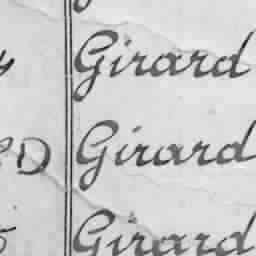 Girard
D Girard
Girard